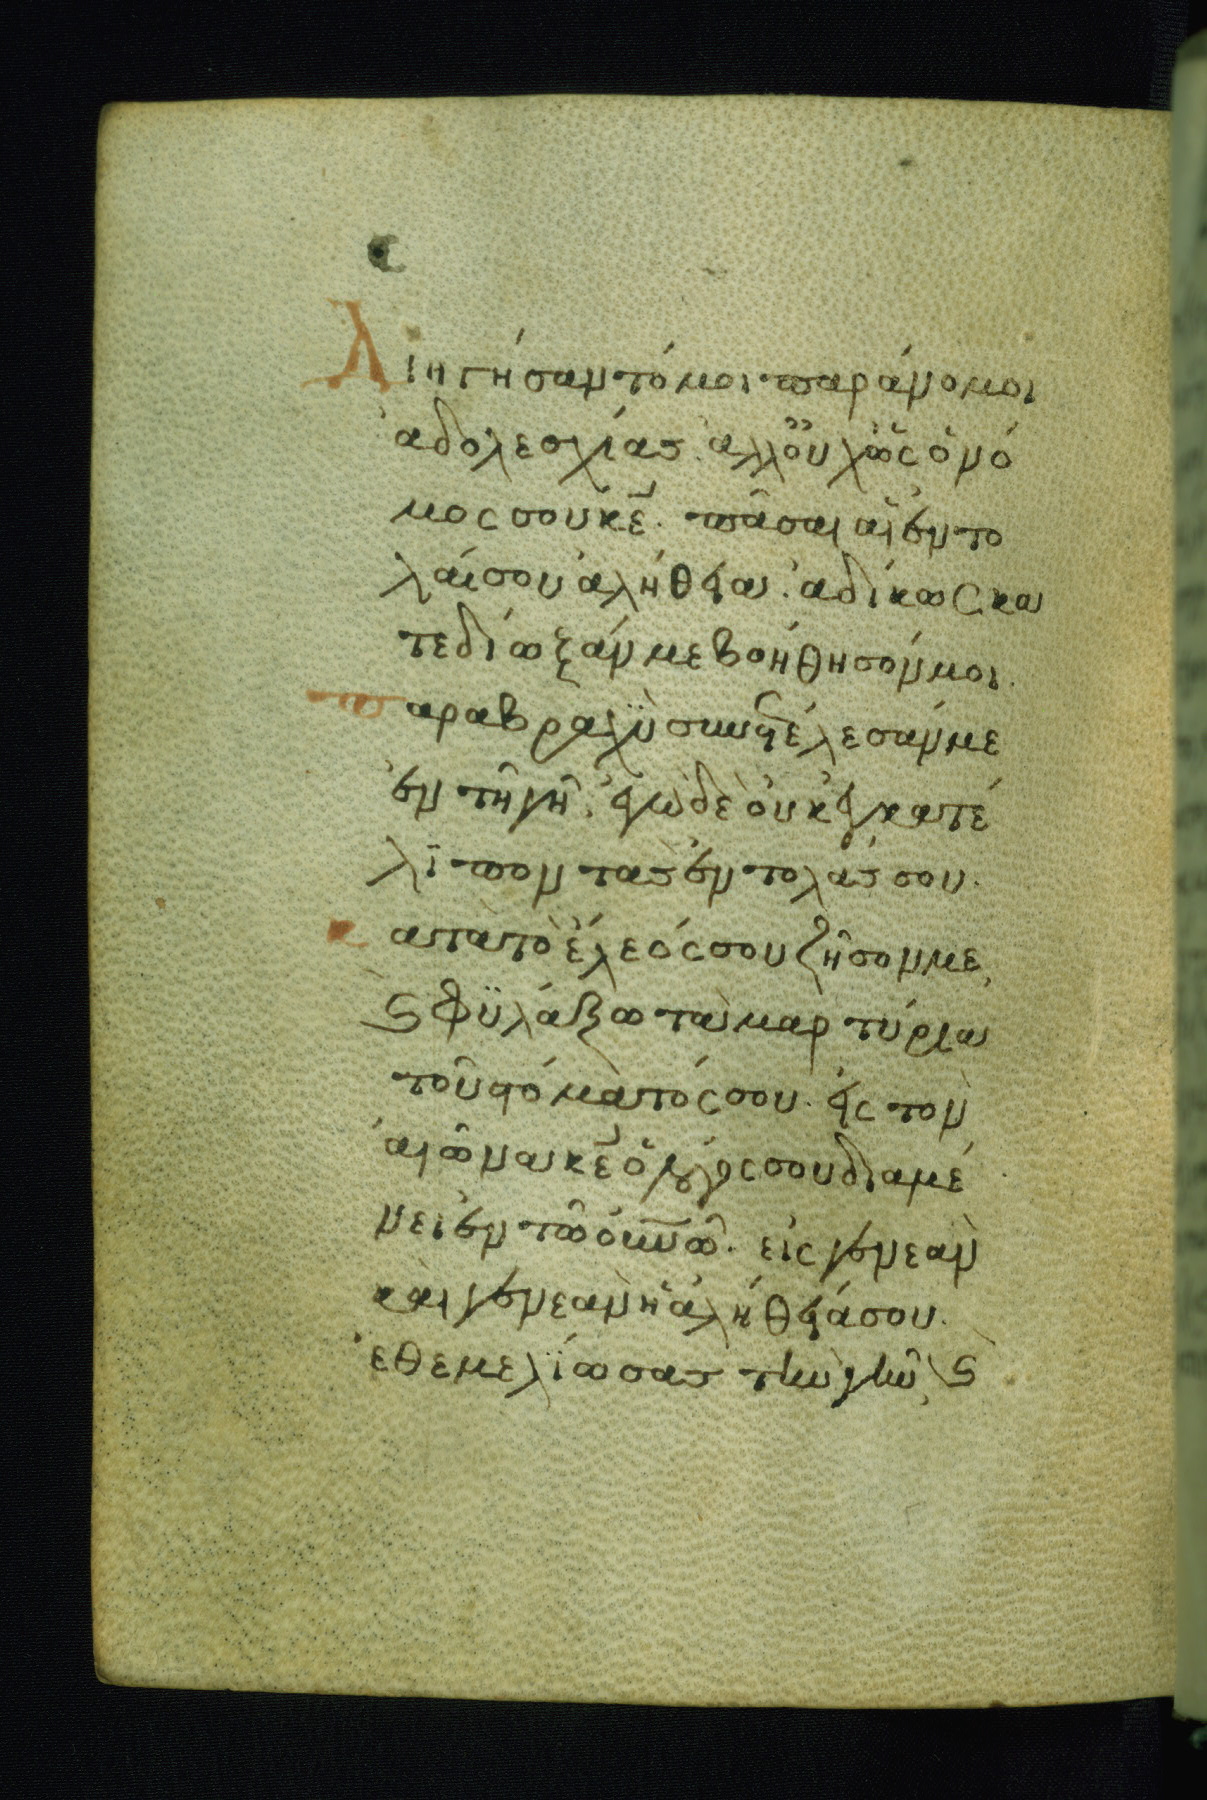 Διηγήσαντό μοι παράνομοι
ἀδολεσχίας. ἀλλ' οὐχ ὡς ὁ νό
μος σου κε̅. πᾶσαι αἱ ἐντο
λαί σου ἀλήθεια. ἀδίκως κα
τεδίωξάν με βοήθησόν μοι.
Παρα βραχὺ συνετέλεσάν με
ἐν τῆ γῆ. ἐγὼ δὲ οὐκ ἐγκατέ
λιπον τὰς ἐντολάς σου.
Κατὰ τὸ ἔλεός σου ζῆσόν με,
ϛ φϋλάξω τὰ μαρτύρια
τοῦ στόματός σου. εἰς τὸν
αἰῶνα κε̅ ὁ λόγος σου διαμέ
νει ἐν τῶ οὐν̅ῶ. εἰς γενεὰν
καὶ γενεὰν ἡ ἀλήθειά σου.
ἐθεμελίωσας τὴν γῆν, ϛ